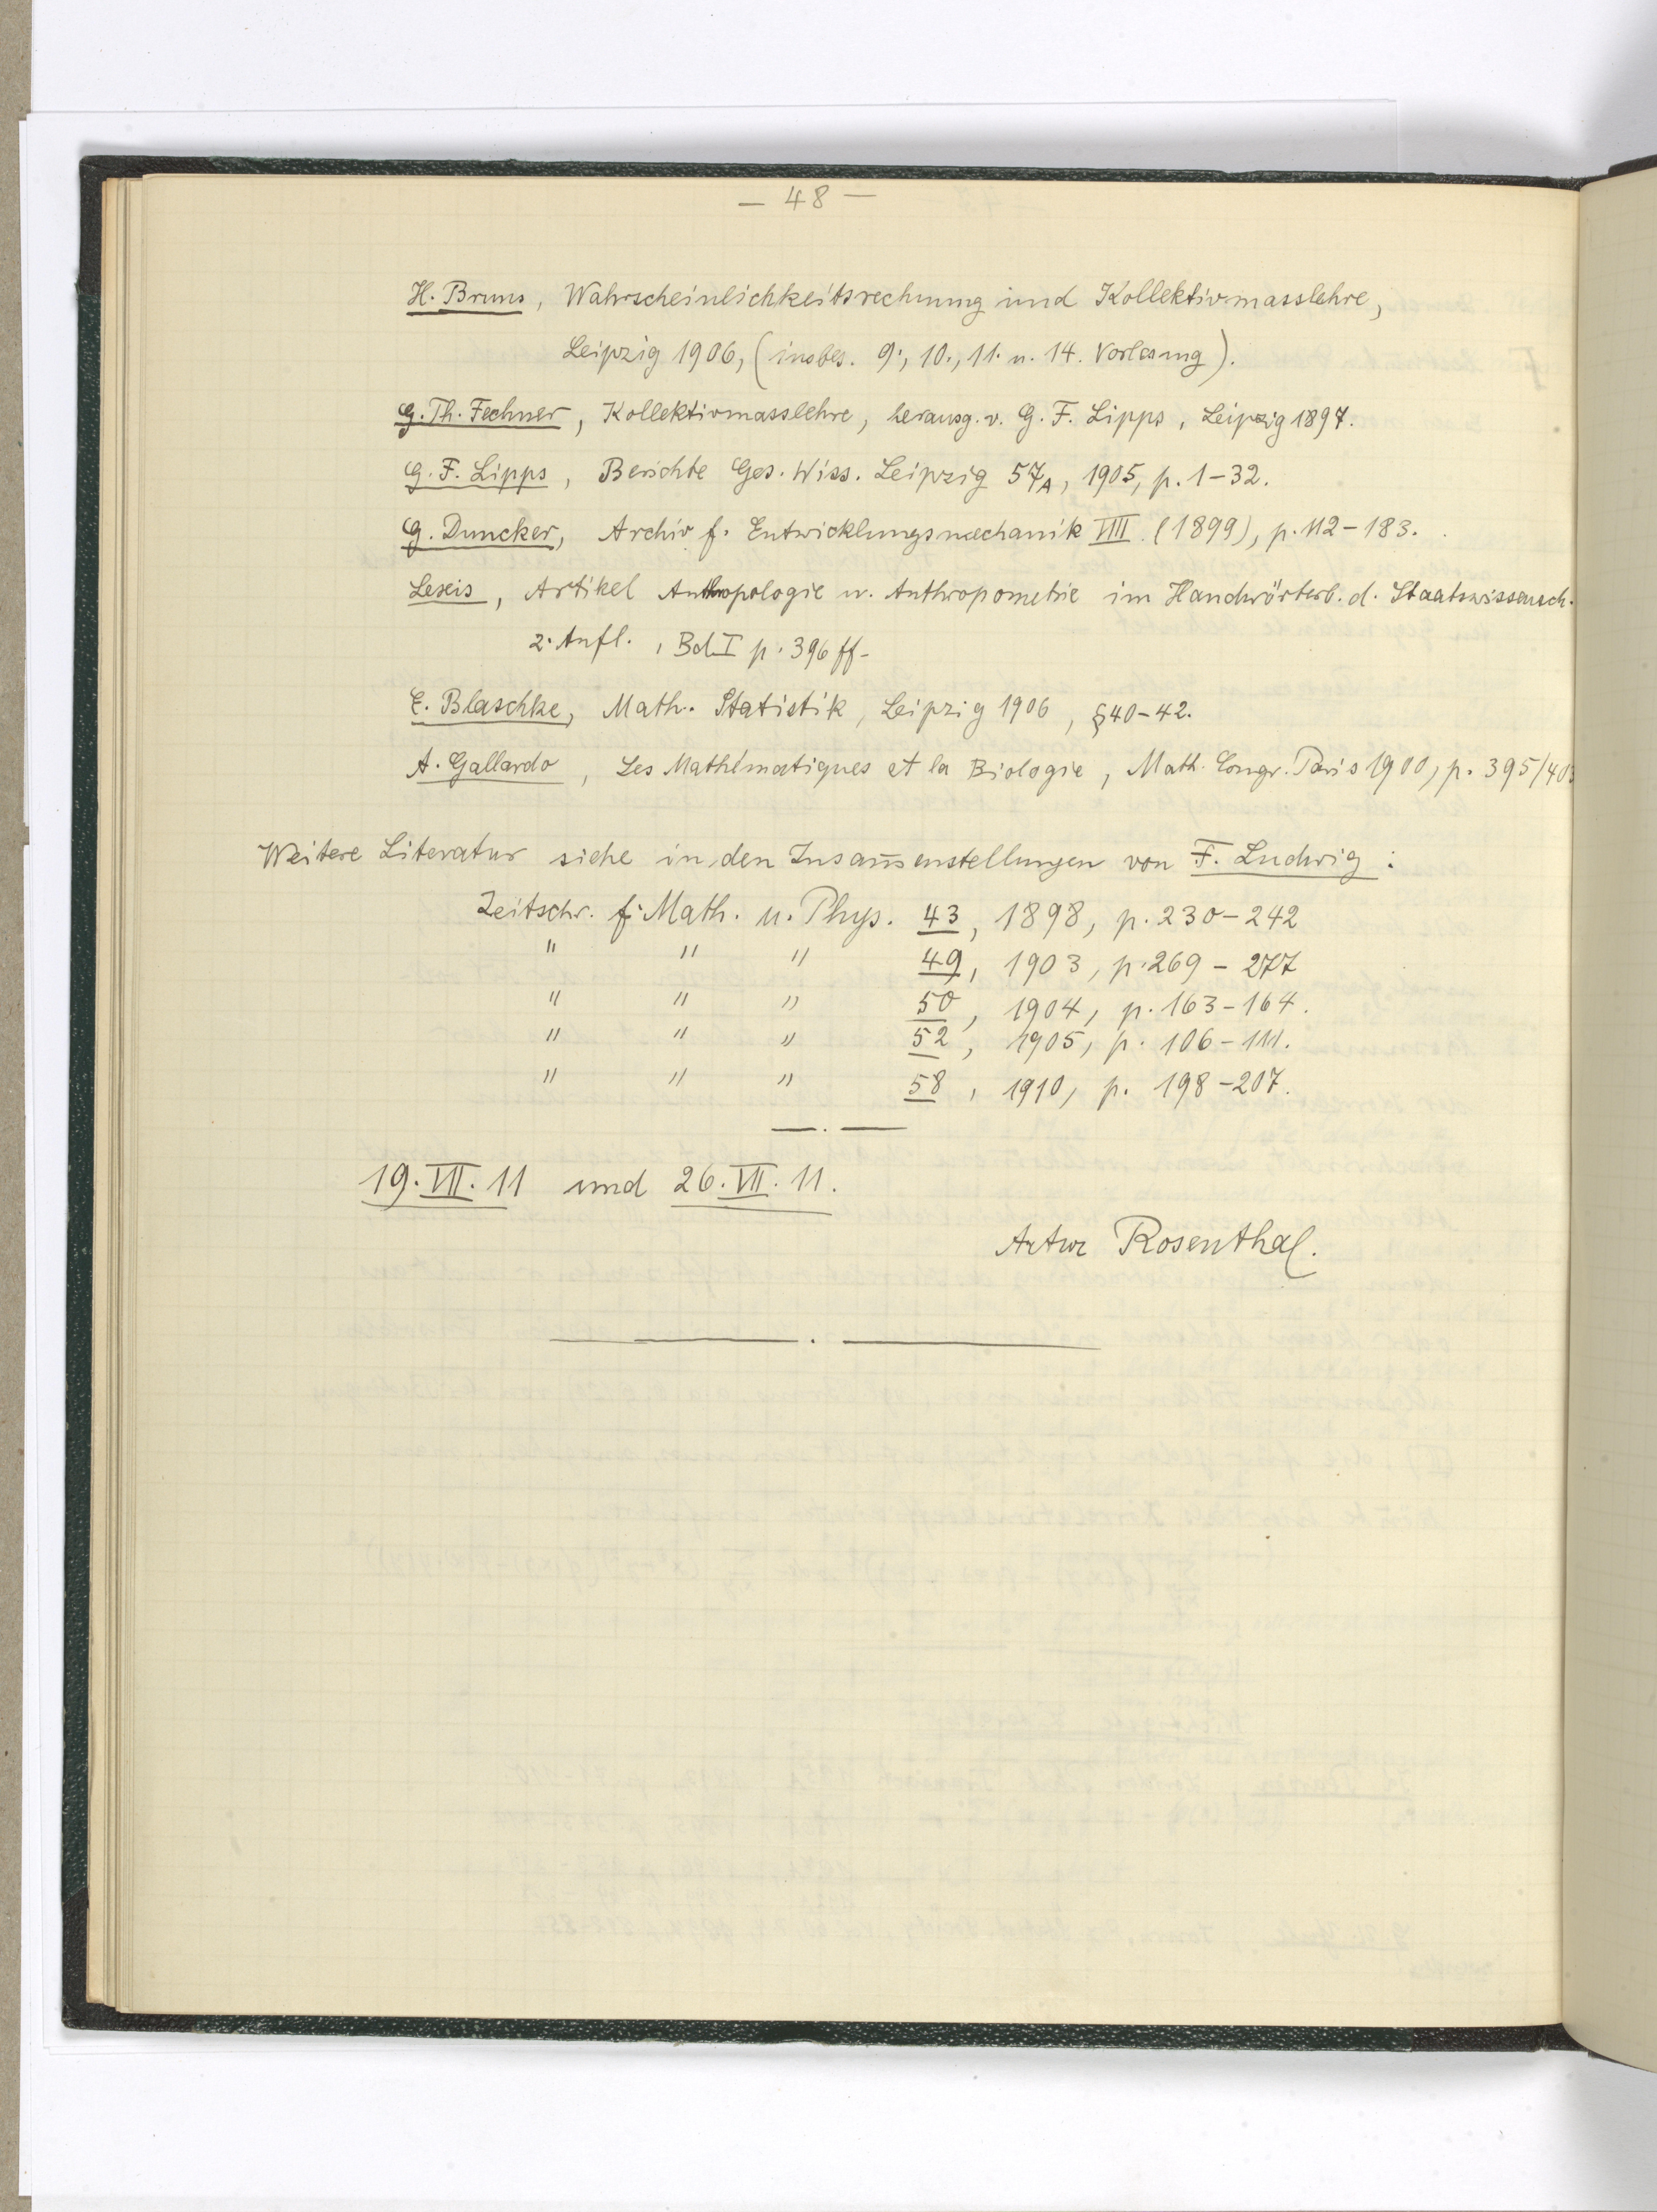 — 48 —
H. Bruns, Wahrscheinlichkeitsrechnung und Kollektivmasslehre,
Leipzig 1906, (insbes. 9., 10., 11. u. 14. Vorlesung).
G. Th. Fechner, Kollektivmasslehre, herausg. v. G. F. Lipps, Leipzig 1897.
G. F. Lipps, Berichte Ges. Wiss. Leipzig 57A, 1905, p. 1–32.
G. Duncker, Archiv f. Entwicklungsmechanik VIII (1899), p. 112–183.
Lexis, Artikel Anthropologie u. Anthropometrie im Handwörterb. d. Staatswissensch.
2. Aufl., Bd. I p. 396 ff.
E. Blaschke, Math. Statistik, Leipzig 1906, § 40–42.
A. Gallardo, Les Mathématiques et la Biologie, Math. Congr. Paris 1900, p. 395/403
Weitere Literatur siehe in den Zusam̅enstellungen von F. Ludwig:
Zeitschr. f. Math. u. Phys. 43, 1898, p. 230–242
" " " 49, 1903, p. 269–277
" " " 50, 1904, p. 163–164.
" " " 52, 1905, p. 106–111.
" " " 58, 1910, p. 198–207.
19. VII. 11 und 26. VII. 11.
Artur Rosenthal.